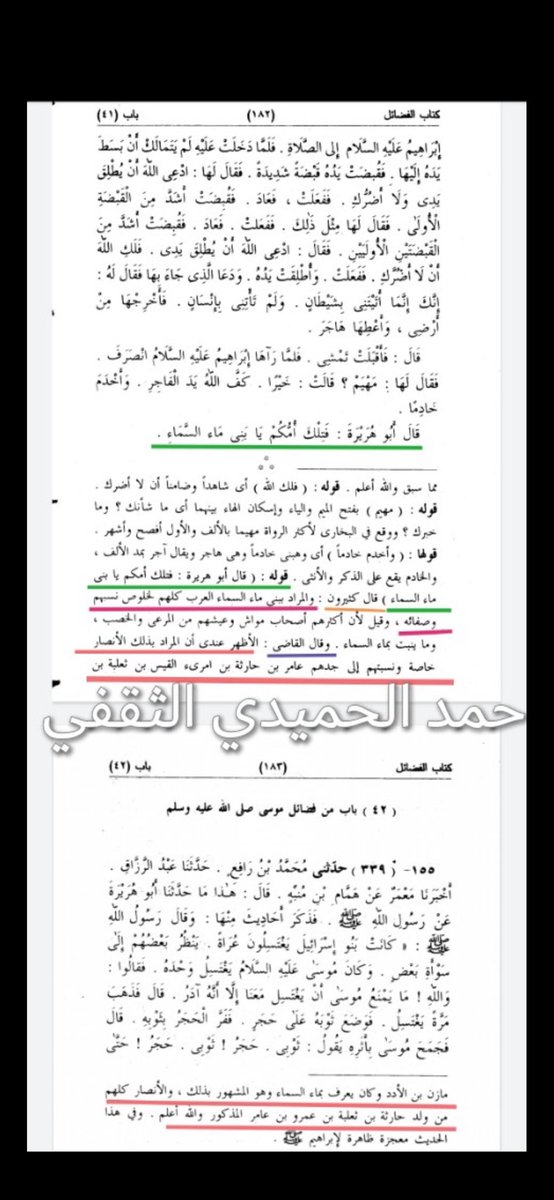 كتاب الفضائل (١٨٢) باب (٤١)
إِبْرَاهِيمُ عَلَيْهِ السَّلَامُ إِلَى الصَّلَاةِ . فَلَمَّا دَخَلَتْ عَلَيْهِ لَمْ يَتَمَالَكْ أَنْ بَسَطَ
يَدَهُ إِلَيْهَا . فَقُبِضَتْ يَدُهُ قَبْضَةً شَدِيدَةً . فَقَالَ لَهَا : ادْعِى اللهَ أَنْ يُطْلِقَ
يَدِى وَلَا أَضُرُّكِ . فَفَعَلَتْ ، فَعَادَ . فَقُبِضَتْ أَشَدَّ مِنَ الْقَبْضَةِ
الْأُولَى . فَقَالَ لَهَا مِثْلَ ذَلِكَ . فَفَعَلتْ . فَعَادَ . فَقُبِضَتْ أَشَدَّ مِنَ
الْقَبْضَتَيْنِ الْأُولَيَيْنِ . فَقَالَ : ادْعِى اللهَ أَنْ يُطْلِقَ يَدِى . فَلَكِ اللهَ
أَنْ لَا أَضُرَّكِ . فَفَعَلَتْ . وَأُطْلِقَتْ يَدُهُ . وَدَعَا الَّذِى جَاءَ بِهَا فَقَالَ لَهُ :
إِنَّكَ إِنَّمَا أَتَيْتَنِى بِشَيْطَانٍ . وَلَمْ تَأْتِنِى بِإِنْسَانٍ . فَأَخْرِجْهَا مِنْ
أَرْضِى ، وَأَعْطِهَا هَاجَرَ .
قَالَ : فَأَقْبَلَتْ تَمْشِى . فَلَمَّا رَآهَا إِبْرَاهِيمُ عَلَيْهِ السَّلَامُ انْصَرَفَ .
فَقَالَ لَهَا : مَهْيَمْ ؟ قَالَتْ : خَيْرًا . كَفَّ اللهُ يَدَ الْفَاجِرِ . وَأَخْدَمَ
خَادِمًا .
قَالَ أَبُو هُرَيْرَةَ : فَتِلْكَ أُمُّكُمْ يَا بَنِى مَاءِ السَّمَاءِ .
مما سبق والله أعلم . قوله : ( فلك الله ) أى شاهداً وضامناً أن لا أضرك .
قوله : ( مهيم ) بفتح الميم والياء وإسكان الهاء بينهما أى ما شأنك ؟ وما
خبرك ؟ ووقع فى البخارى لأكثر الرواة مهيما بالألف والأول أفصح وأشهر .
قولها : ( وأخدم خادماً ) أى وهبنى خادماً وهى هاجر ويقال آجر بمد الألف ،
والخادم يقع على الذكر والأنثى . قوله : ( قال أبو هريرة : فتلك أمكم يا بنى
ماء السماء ) قال كثيرون : والمراد ببنى ماء السماء العرب كلهم لخلوص نسبهم
وصفائه ، وقيل لأن أكثرهم أصحاب مواش وعيشهم من المرعى والخصب ،
وما ينبت بماء السماء . وقال القاضى : الأظهر عندى أن المراد بذلك الأنصار
خاصة ونسبتهم إلى جدهم عامر بن حارثة بن امرىء القيس بن ثعلبة بن
حمد الحميدي الثقفي
كتاب الفضائل (١٨٣) باب (٤٢)
(٤٢) باب من فضائل موسى صلى الله عليه وسلم
١٥٥- (٣٣٩) حدّثنى مُحَمَّدُ بْنُ رَافِعٍ . حَدَّثَنَا عَبْدُ الرَّزَّاقِ .
أَخْبَرَنَا مَعْمَرٌ عَنْ هَمَّامِ بْنِ مُنَبِّهٍ . قَالَ : هَذَا مَا حَدَّثَنَا أَبُو هُرَيْرَةَ
عَنْ رَسُولِ اللهِ ﷺ . فَذَكَرَ أَحَادِيثَ مِنْهَا : وَقَالَ رَسُولُ اللهِ
ﷺ : « كَانَتْ بَنُو إِسْرَائِيلَ يَغْتَسِلُونَ عُرَاةً . يَنْظُرُ بَعْضُهُمْ إِلَى
سَوْأَةِ بَعْضٍ . وَكَانَ مُوسَى عَلَيْهِ السَّلَامُ يَغْتَسِلُ وَحْدَهُ . فَقَالُوا :
وَاللهِ ! مَا يَمْنَعُ مُوسَى أَنْ يَغْتَسِلَ مَعَنَا إِلَّا أَنَّهُ آدَرُ . قَالَ فَذَهَبَ
مَرَّةً يَغْتَسِلُ . فَوَضَعَ ثَوْبَهُ عَلَى حَجَرٍ . فَفَرَّ الْحَجَرُ بِثَوْبِهِ . قَالَ
فَجَمَحَ مُوسَى بِأَثَرِهِ يَقُولُ : ثَوْبِى . حَجَرُ ! ثَوْبِى . حَجَرُ ! حَتَّى
مازن بن الأدد وكان يعرف بماء السماء وهو المشهور بذلك ، والأنصار كلهم
من ولد حارثة بن ثعلبة بن عمرو بن عامر المذكور والله أعلم . وفى هذا
الحديث معجزة ظاهرة لإبراهيم ﷺ .